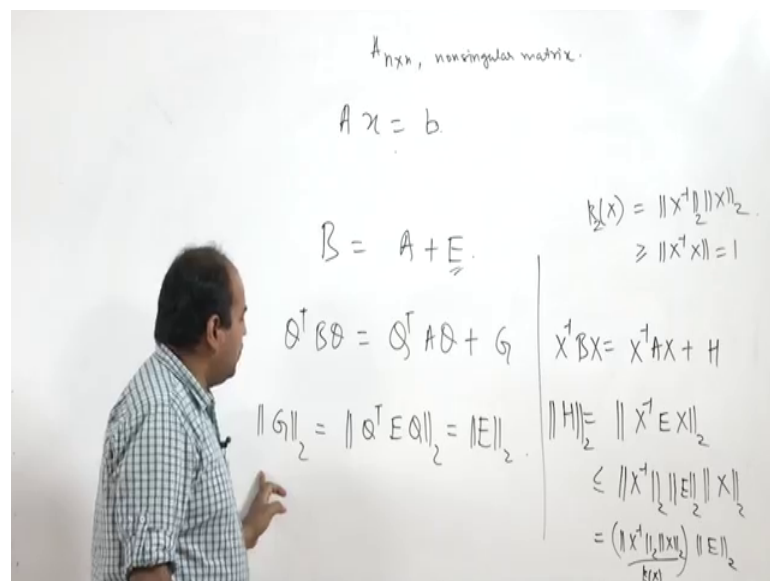 A n×n, nonsingular matrix.
A x = b.
B = A + E.
Qᵀ B Q = Qᵀ A Q + G
‖G‖₂ = ‖Qᵀ E Q‖₂ = ‖E‖₂.
k₂(X) = ‖X⁻¹‖₂ ‖X‖₂.
≥ ‖X⁻¹ X‖ = 1
X⁻¹ B X = X⁻¹ A X + H
‖H‖₂ = ‖X⁻¹ E X‖₂
≤ ‖X⁻¹‖₂ ‖E‖₂ ‖X‖₂
= (‖X⁻¹‖₂ ‖X‖₂) ‖E‖₂
k(X)